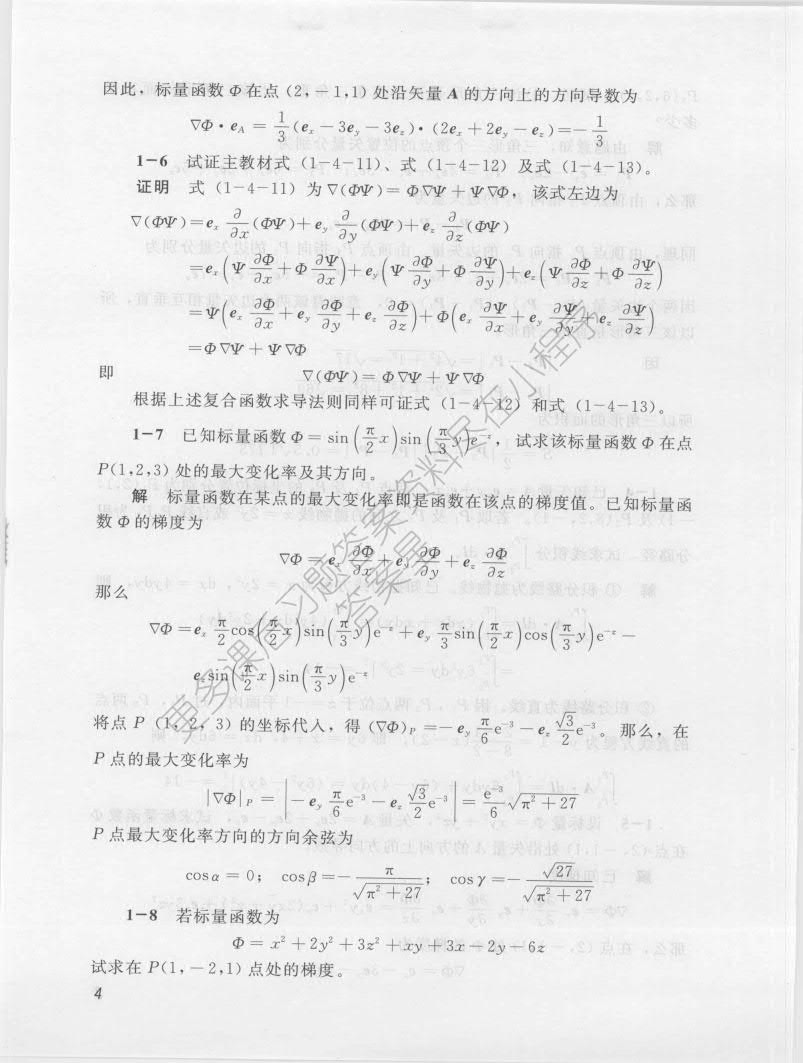 因此，标量函数 Φ 在点 (2, −1,1) 处沿矢量 A 的方向上的方向导数为
∇Φ · e_A = 1/3 (e_x − 3e_y − 3e_z) · (2e_x + 2e_y − e_z) = − 1/3
1-6 试证主教材式 (1-4-11)、式 (1-4-12) 及式 (1-4-13)。
证明 式 (1-4-11) 为 ∇(ΦΨ) = Φ∇Ψ + Ψ∇Φ，该式左边为
∇(ΦΨ) = e_x ∂/∂x (ΦΨ) + e_y ∂/∂y (ΦΨ) + e_z ∂/∂z (ΦΨ)
= e_x (Ψ ∂Φ/∂x + Φ ∂Ψ/∂x) + e_y (Ψ ∂Φ/∂y + Φ ∂Ψ/∂y) + e_z (Ψ ∂Φ/∂z + Φ ∂Ψ/∂z)
= Ψ (e_x ∂Φ/∂x + e_y ∂Φ/∂y + e_z ∂Φ/∂z) + Φ (e_x ∂Ψ/∂x + e_y ∂Ψ/∂y + e_z ∂Ψ/∂z)
= Φ∇Ψ + Ψ∇Φ
即 ∇(ΦΨ) = Φ∇Ψ + Ψ∇Φ
根据上述复合函数求导法则同样可证式 (1-4-12) 和式 (1-4-13)。
1-7 已知标量函数 Φ = sin (π/2 x) sin (π/3 y) e^{−z}，试求该标量函数 Φ 在点
P(1,2,3) 处的最大变化率及其方向。
解 标量函数在某点的最大变化率即是函数在该点的梯度值。已知标量函
数 Φ 的梯度为
∇Φ = e_x ∂Φ/∂x + e_y ∂Φ/∂y + e_z ∂Φ/∂z
那么
∇Φ = e_x π/2 cos (π/2 x) sin (π/3 y) e^{−z} + e_y π/3 sin (π/2 x) cos (π/3 y) e^{−z} −
e_z sin (π/2 x) sin (π/3 y) e^{−z}
将点 P (1, 2, 3) 的坐标代入，得 (∇Φ)_P = − e_y π/6 e^{−3} − e_z √3/2 e^{−3}。那么，在
P 点的最大变化率为
|∇Φ|_P = | − e_y π/6 e^{−3} − e_z √3/2 e^{−3} | = e^{−3}/6 √(π² + 27)
P 点最大变化率方向的方向余弦为
cos α = 0; cos β = − π/√(π² + 27); cos γ = − √27/√(π² + 27)
1-8 若标量函数为
Φ = x² + 2y² + 3z² + xy + 3x − 2y − 6z
试求在 P(1, − 2,1) 点处的梯度。
4
更多课后习题答案资料尽在小程序
答案星